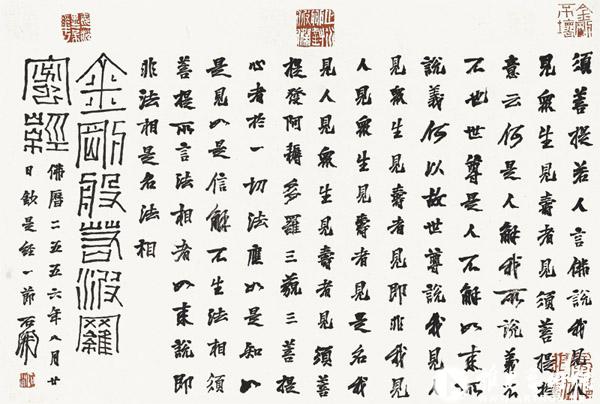 須菩提若人言佛說我見人
見眾生見壽者見須菩提於
意云何是人解我所說義不
不也世尊是人不解如來所
說義何以故世尊說我見人
見眾生見壽者見即非我見
人見眾生見壽者見是名我
見人見眾生見壽者見須菩
提發阿耨多羅三藐三菩提
心者於一切法應如是知如
是見如是信解不生法相須
菩提所言法相者如來說即
非法相是名法相
金剛般若波羅
蜜經
佛曆二五五六年八月廿
日敬是經一節